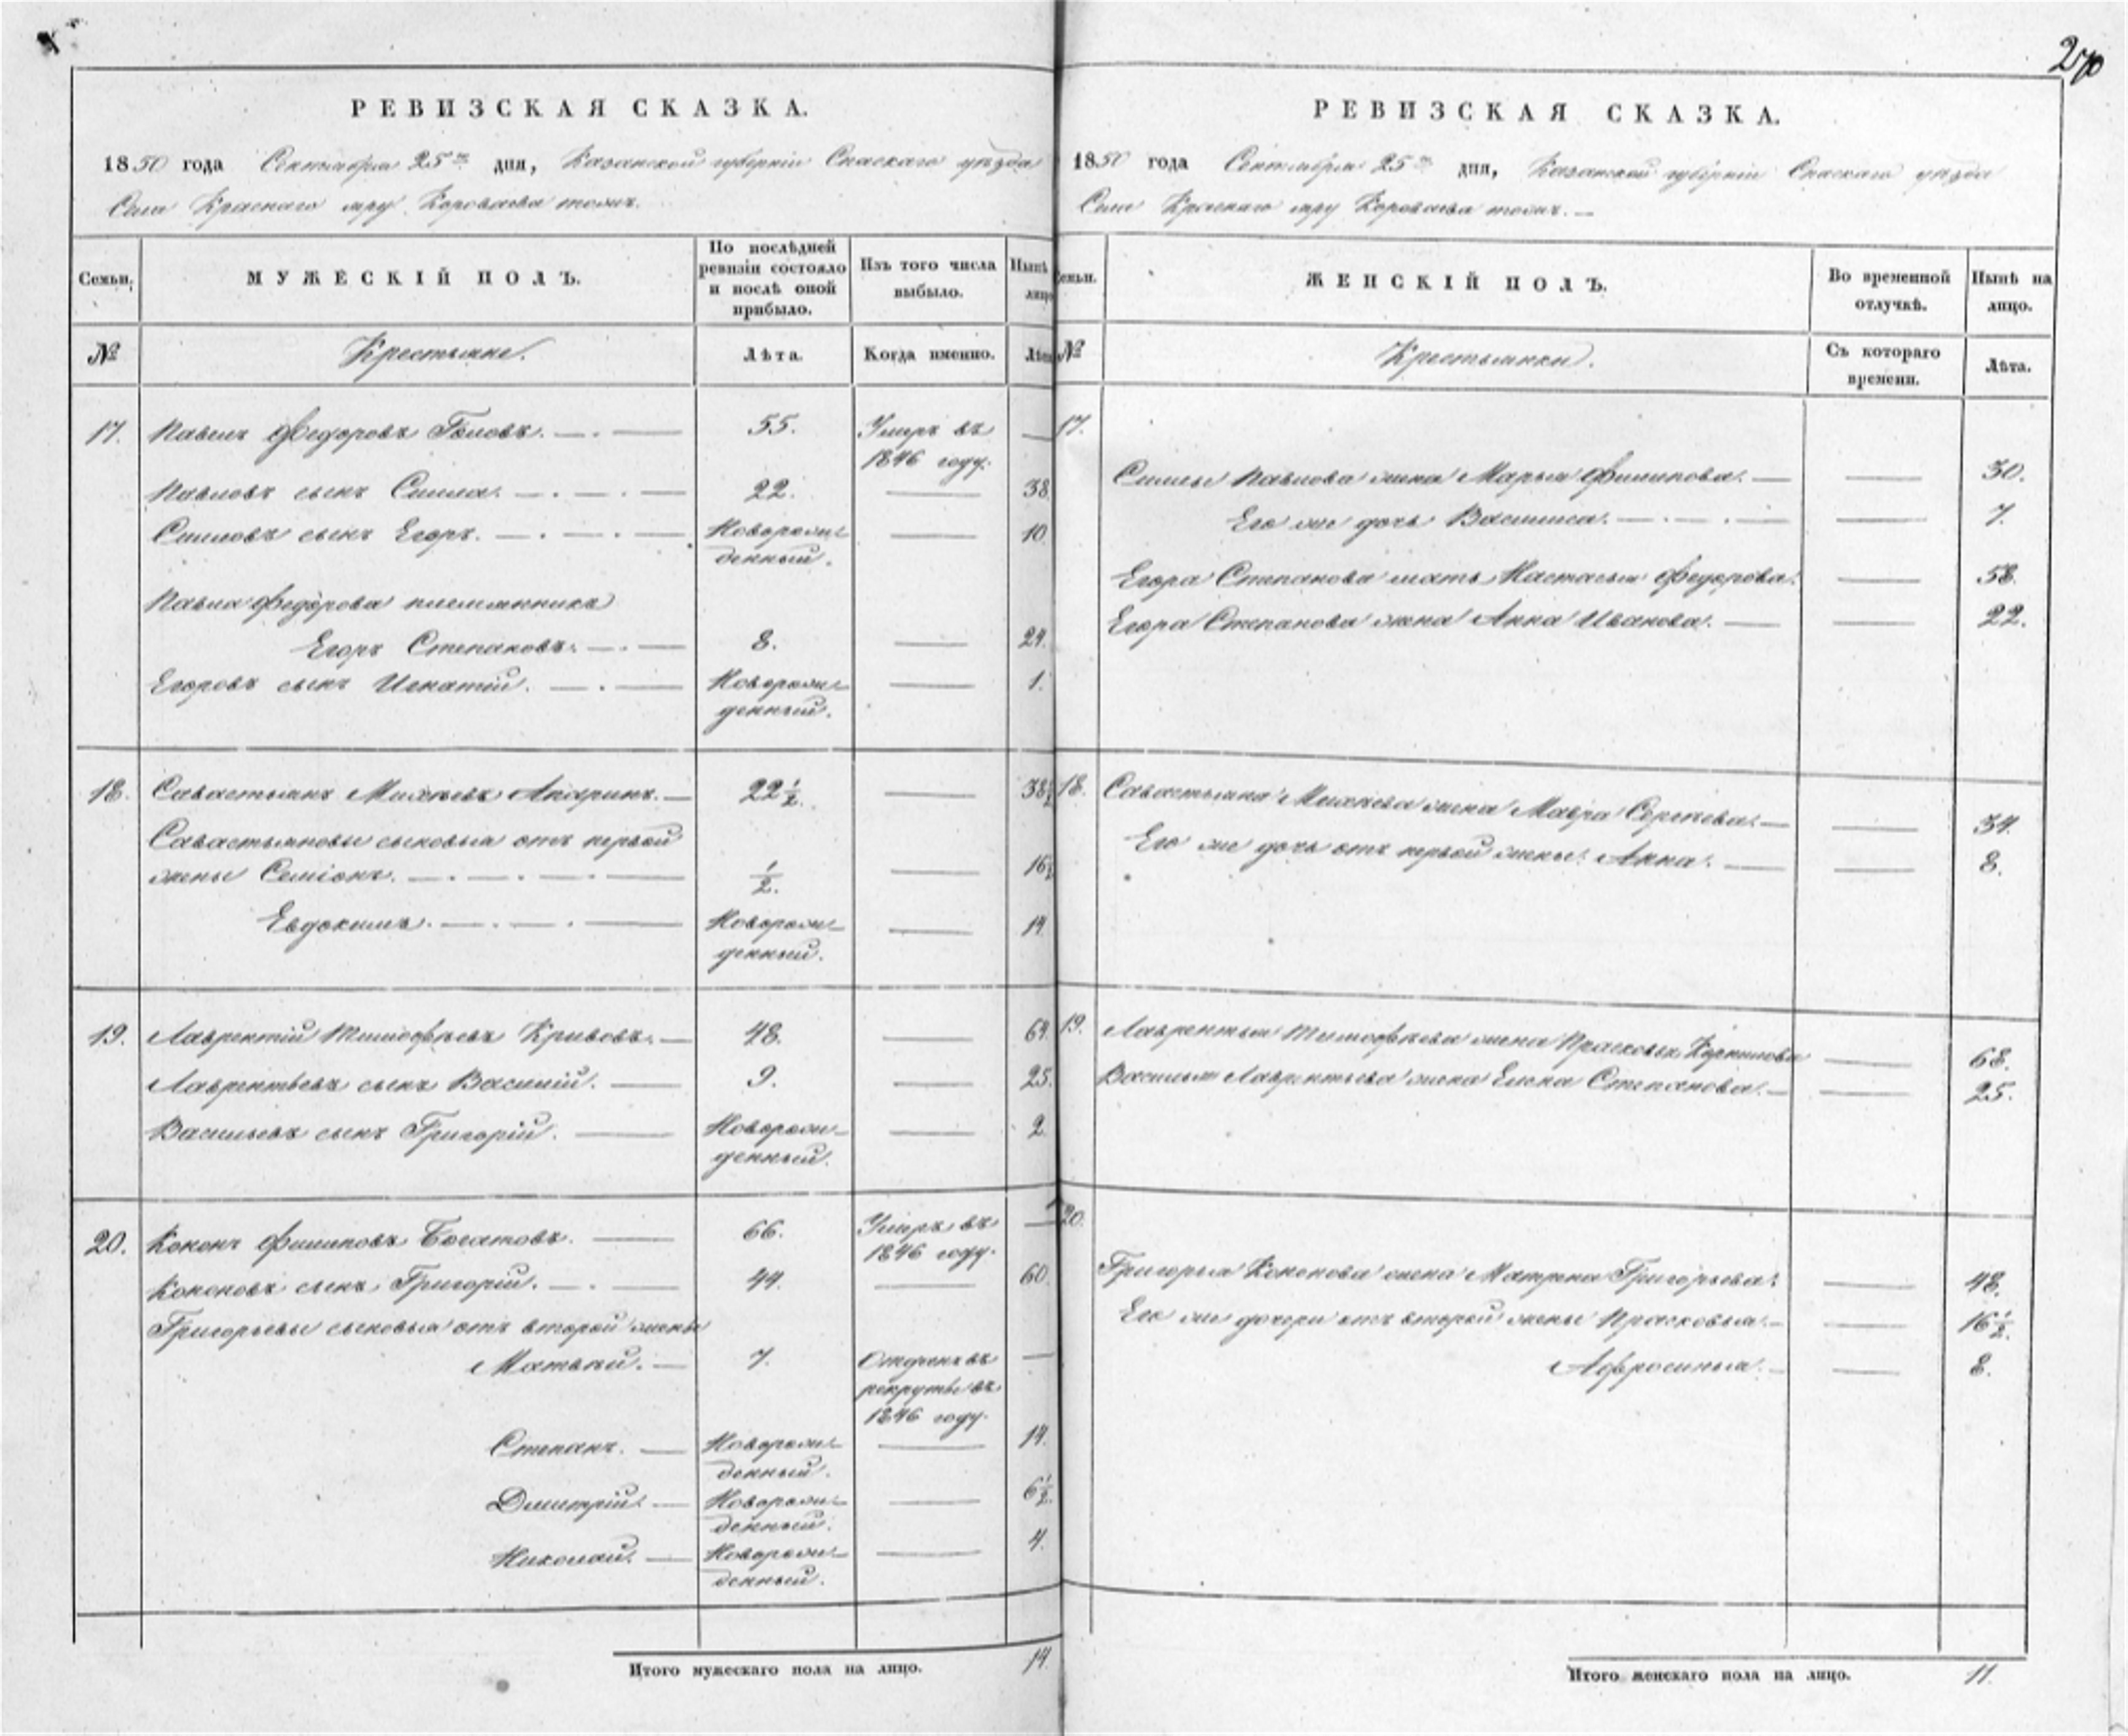 270
РЕВИЗСКАЯ СКАЗКА.
1850 года Сентября 25го дня, Казанской губерніи Спаскаго уѣзда
Села Краснаго яру Короваева тожъ.
Семьи.
МУЖЕСКІЙ ПОЛЪ.
По послѣдней
ревизіи состояло
и послѣ оной
прибыло.
Изъ того числа
выбыло.
Нынѣ
лицо
№
Крестьяне.
Лѣта.
Когда именно.
Лѣта
17. Павелъ Федоровъ 55. Умеръ въ —
1846 году.
Павловъ сынъ Силла. 22. — 38.
Силловъ сынъ Егоръ. Новорож- — 10.
денный.
Павла Федорова племянникъ
Егоръ Степановъ. 8. — 24.
Егоровъ сынъ Игнатій. Новорож- — 1.
денный.
18. Савастьянъ Михѣевъ 22½. — 38½
Савастьяновы сыновья отъ первой
жены Семіонъ. ½. — 16½
Евдокимъ. Новорож- — 14.
денный.
19. Лаврентій Тимофѣевъ Кривовъ. 48. — 64.
Лаврентьевъ сынъ Василій. 9. — 25.
Васильевъ сынъ Григорій. Новорож- — 2.
денный.
20. Кононъ Филиповъ Богатовъ. 66. Умеръ въ —
1846 году.
Кононовъ сынъ Григорій. 44. — 60.
Григорьевы сыновья отъ второй жены
Матвѣй. 7. Отданъ въ —
рекруты въ
1846 году.
Степанъ. Новорож- — 14.
денный.
Дмитрій. Новорож- — 6½.
денный.
Николай. Новорож- — 4.
денный.
Итого мужескаго пола на лицо. 14.
РЕВИЗСКАЯ СКАЗКА.
1850 года Сентября 25го дня, Казанской губерніи Спаскаго уѣзда
Села Краснаго яру Короваева тожъ. —
Семьи.
ЖЕНСКІЙ ПОЛЪ.
Во временной
отлучкѣ.
Нынѣ на
лицо.
№
Крестьянки.
Съ котораго
времени.
Лѣта.
17.
Силлы Павлова жена Марья Филипова. — 30.
Его же дочь Василиса. — 7.
Егора Степанова мать Настасья Федорова. — 58.
Егора Степанова жена Анна Иванова. — 22.
18. Савастьяна Михѣева жена Мавра Сергѣева. — 34.
Его же дочь отъ первой жены Анна. — 8.
19. Лаврентья Тимофѣева жена Прасковья Корнилова — 68.
Василья Лаврентьева жена Елена Степанова. — 25.
20.
Григорья Кононова жена Матрена Григорьева. — 48.
Его же дочери отъ второй жены Прасковья. — 16½.
Афросинья. — 8.
Итого женскаго пола на лицо. 11.